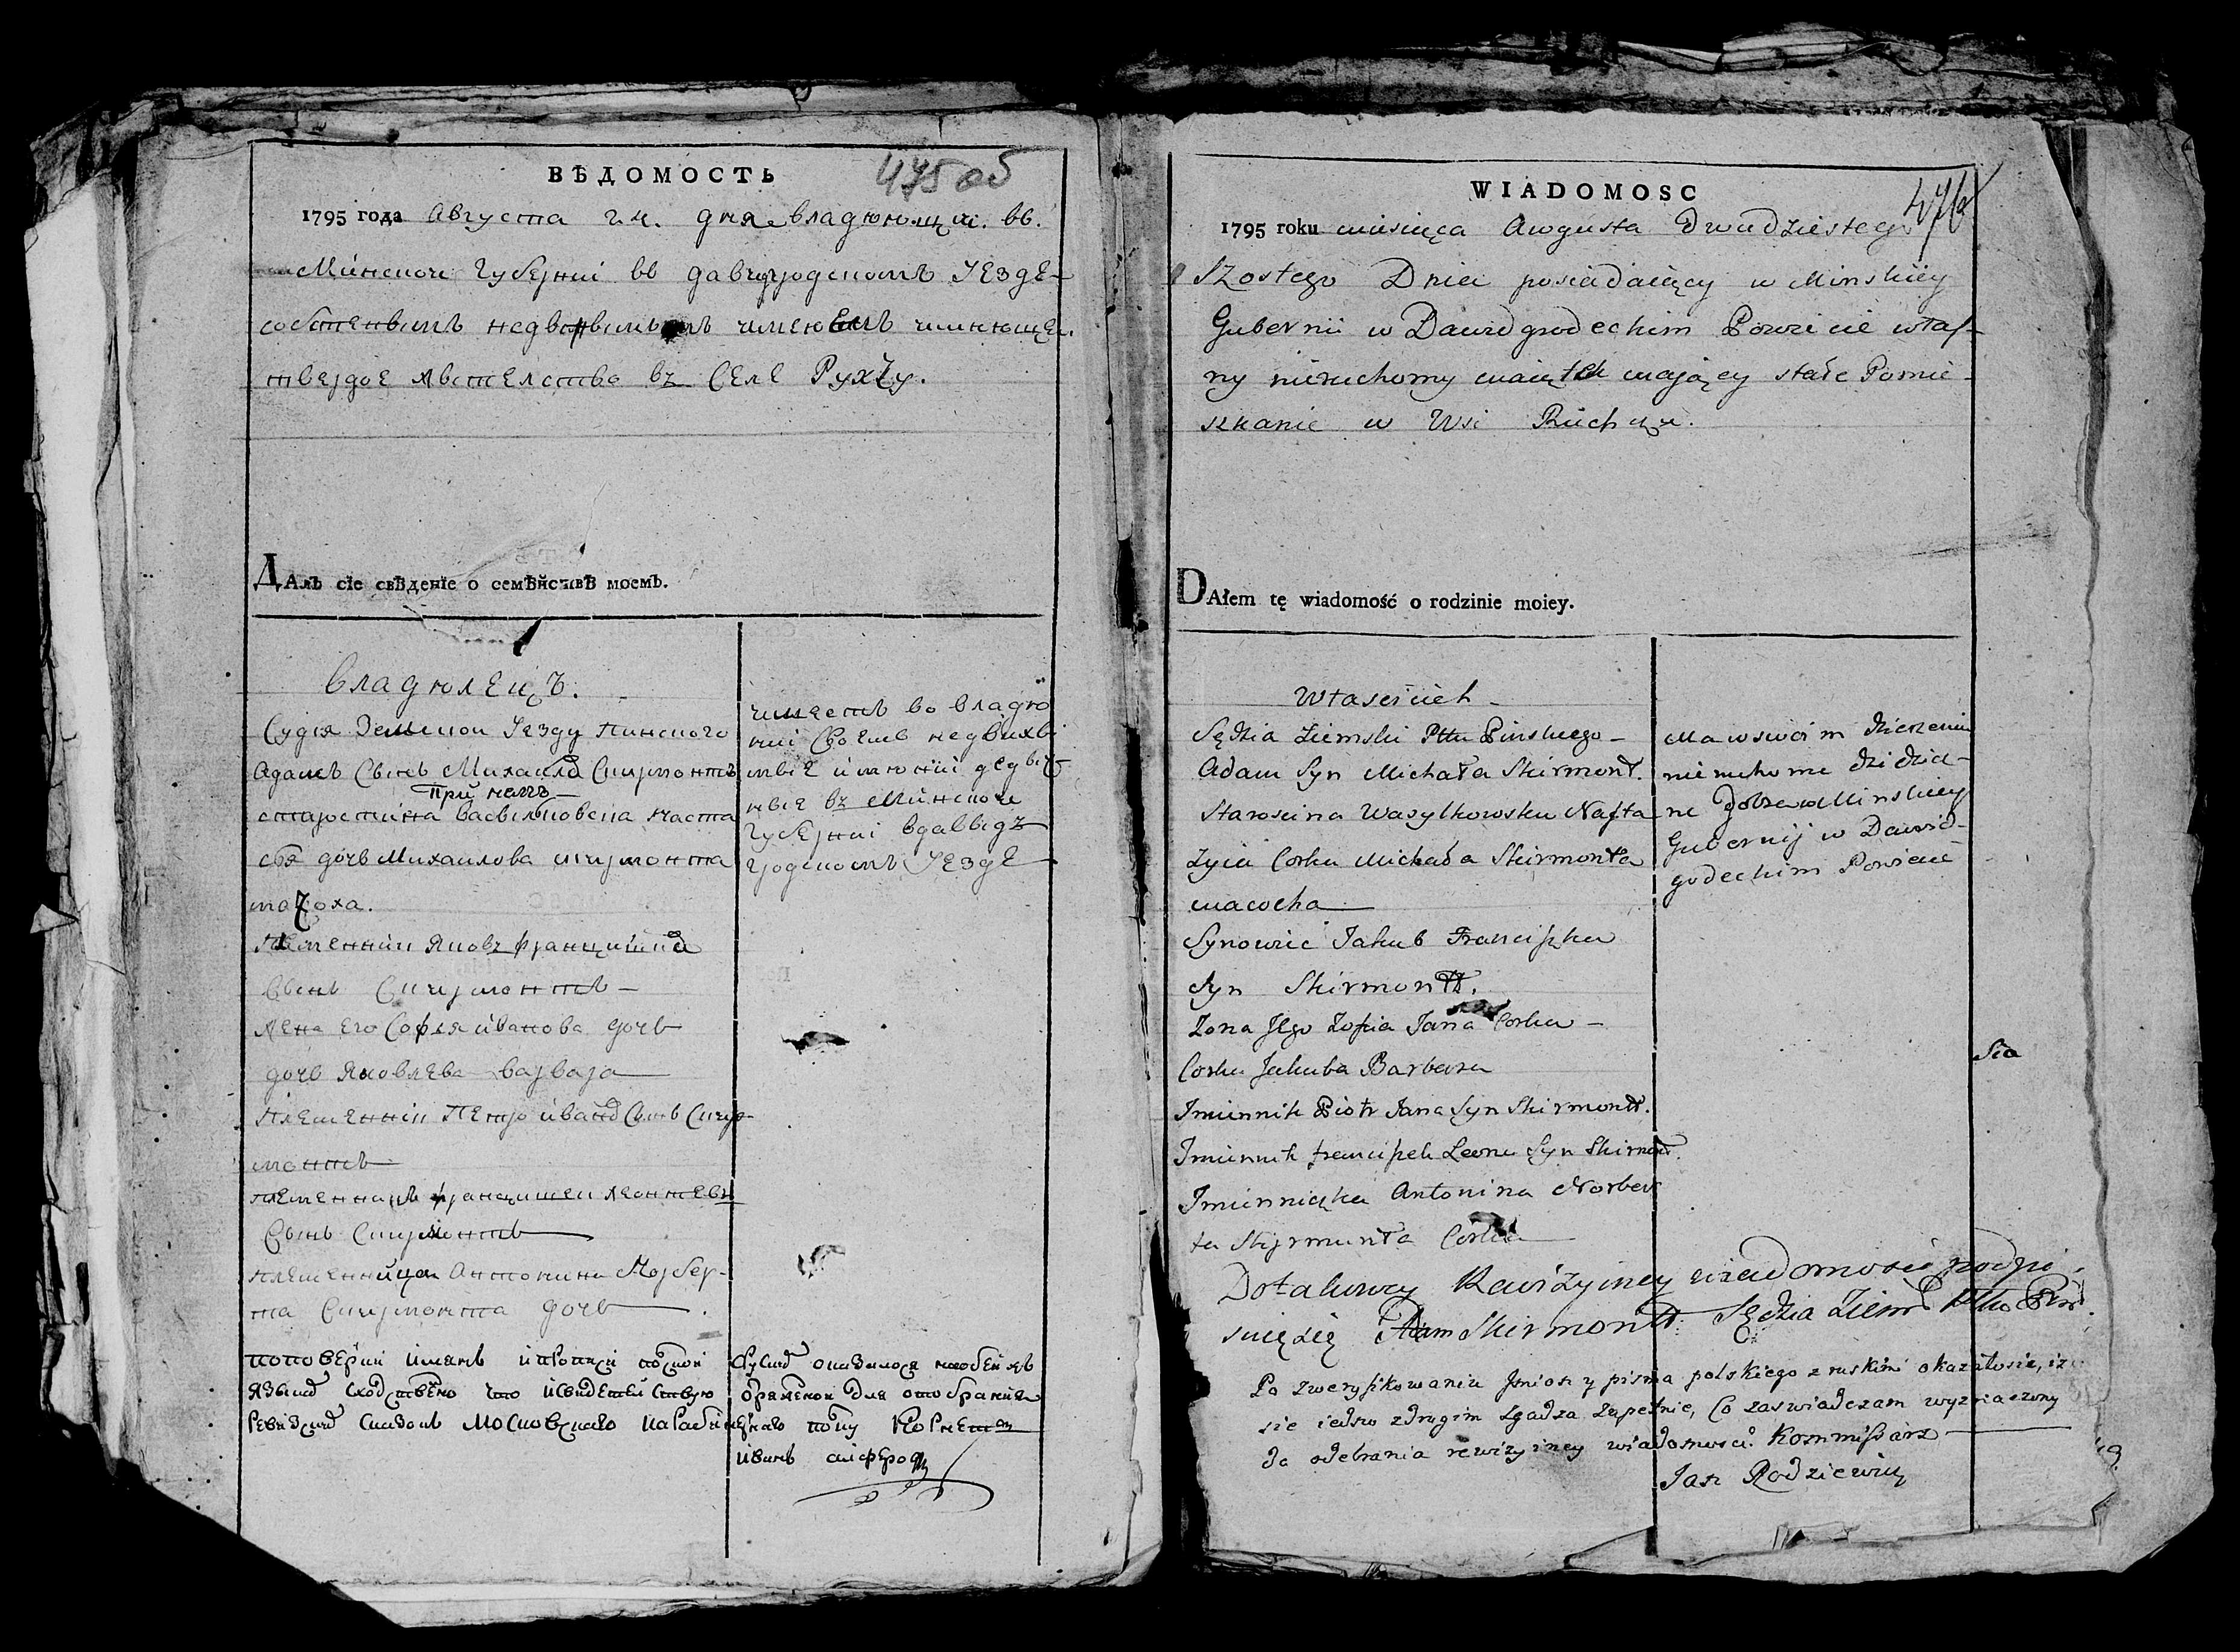 ВѢДОМОСТЬ
475 об
1795 года Августа 24. дня владюющи. вь.
Минскои губернiи вь давидгродскомъ уезде
собственымъ имеющеи.
твердое жителство въ Селе Рухчу.
ДАлъ сїе свѣденїе о семѣйствѣ моемъ.
владюлецъ.
Судiя Земскои уезду Пинского
Адамъ Сынъ Михаила Скирмонтъ
при немъ
старостина васильковска Наста
сия дочь Михаилова скирмонта
мачоха.
племенник Яковъ францишка
Сынъ Скирмонтъ
жена его Софiя иванова дочь
дочь Яковлева варвара
племенник Петр ивана Сынъ Скир-
монтъ
племенникъ францишек леонжевъ
Сынъ Скирмонтъ
племенница Антонина Норбер-
та Скирмонта дочь
имеетъ во владю
нiи Своемъ недвижи
мые имюнiи дедыч
ные въ Минскои
губернiи вдавыд
гродскомъ уезде
иванъ
WIADOMOSC
476
1795 roku miesiąca Awgusta Dwudziestego
Szostego Dnia posiadaiący w Minskiey
Gubernii w Dawidgrodeckim Powiecie włas-
ny nieruchomy maiątek maiący stałe Pomie-
szkanie w Wsi Ruchczu.
DAłem tę wiadomość o rodzinie moiey.
Własciciel
Sędzia Ziemski Pttu Pinskiego
Adam Syn Michała Skirmont.
Staroscina Wasylkowska Nasta
zyia Corka Michała Skirmonta
macocha
Synowiec Jakub Franciszka
Syn Skirmontt.
Zona Jego Zofia Jana Corka
Corka Jakuba Barbara
Imiennik Piotr Jana Syn Skirmontt.
Imiennik franciszek Leona Syn Skirmont.
Imienniczka Antonina Norber
ta Skirmunta Corka
Ma w swoim dzierzeniu
nieruchome dziedzicz-
ne Dobra w Minskiey
Gubernij w Dawid-
godeckim Powiecie
Sia
Do takowey Rewizyiney wiadomosci podpi-
suię się Adam Skirmontt Sędzia Ziem Pttu Pin.
Po zweryfikowaniu Imion y pisma polskiego z ruskim okazałosie, iż
sie iedno z drugim zgadza zupełnie, Co zaswiadczam wyznaczony
do odebrania rewizyiney wiadomosci Kommissarz
Jan Rodziewicz